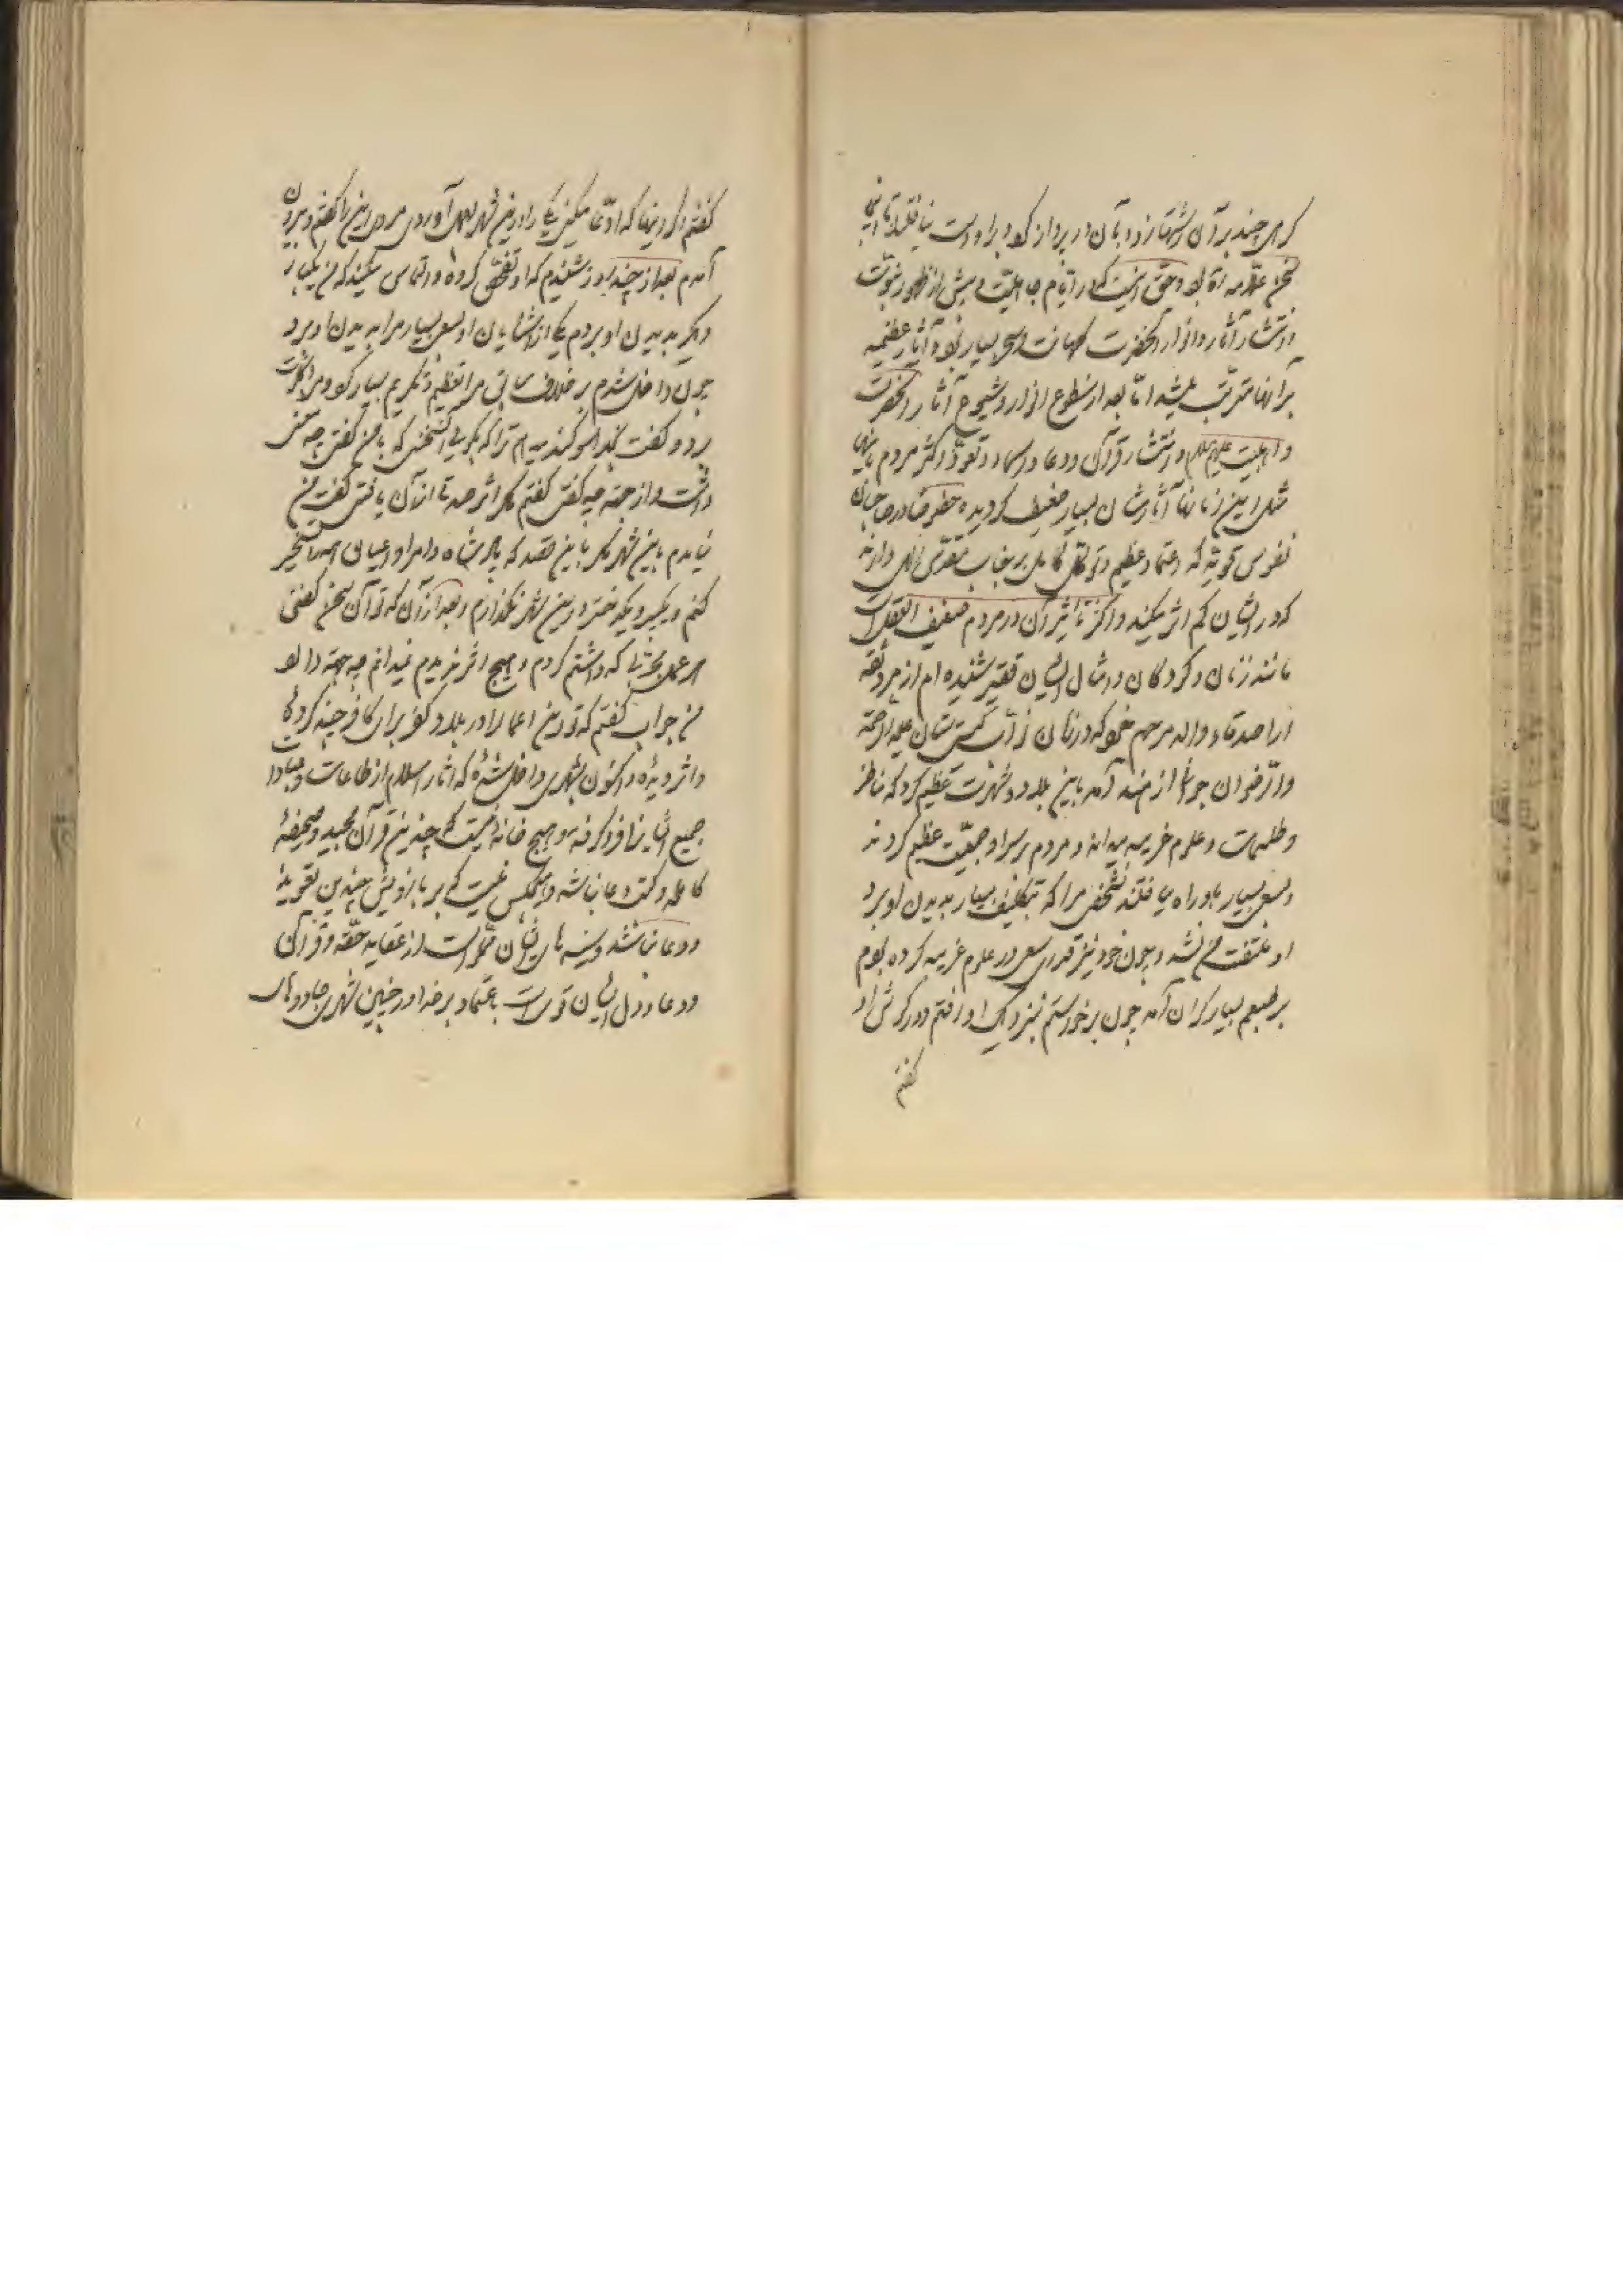 کرهی چند بر آن ریشها زد و بآن در پرواز کرد و برادرت بیانقلابا این
سخن علامه بود و حق اینست که در ایام جاهلیت و پیش از ظهور نبوت
و انتشار آثار و انوار آنحضرت کهانت و سحر بسیار بود و آثار عظیمه
بر آنها مترتب میشد اما بعد از سطوع انوار و شیوع آثار آنحضرت
و اهلبیت علیهم السلام و انتشار قرآن و دعا و اسماء و تعوذ اکثر مردم باینها
مثل این زمانها آثارشان بسیار ضعیف گردیده خصوصا در صاحبان
نفوس قویه که اعتماد عظیم و توکل کامل بر جناب مقدس الهی دارند
که در ایشان کم اثر میکند و اکثر تاثیر آن در مردم ضعیف العقل است
مانند زنان و کودکان و امثال ایشان فقیر شنیده‌ام از مرد ثقه
از اصدقاء والد مرحوم خود که در زمان نواب گیتی ستان علیه الرحمة
و الرضوان جوانی از هند آمد باین بلاد و شهرت عظیم کرد که
و طلسمات و علوم غریبه میداند و مردم بر سر او جمعیت عظیم کردند
و بسعی بسیار باو راه میافتند شخصی مرا که بتکلیف بسیار بدیدن او برد
او ملتفت من نشد و چون خود نیز قدری سعی در علوم غریبه کرده بودم
بر طبعم بسیار گران آمد چون برخاستم نزدیک او رفتم و در گوش او
گفتم
گفتم اگر اینها که ادعا میکنی یکی را در این شهر بعمل آوردی مردی این را گفتم و بیرون
آمدم بعد از چند روز شنیدم که او تفحص کرده و التماس میکند که من یکبار
دیگر بدیدن او بروم یکی از آشنایان او بسعی بسیار مرا بدیدن او برد
چون داخل شدم بر خلاف سابق مرا تعظیم و تکریم بسیار کرد و مرا
برد و گفت بخدا سوگند میدهم ترا که بگوئی آن سخنی که با من گفتی چه معنی
داشت و از چه جهه گفتی گفتم مگر اثر صدق از آن یافتی گفت من
نیامدم باین شهر مگر باین قصد که پادشاه و امرا و اعیانی همه را تسخیر
کنم و یک پسر و یک دختر در این شهر نگذارم و بعد از آن که تو آن سخن گفتی
هر عمل مجربی که داشتم کردم و هیچ اثر ندیدم نمیدانم چه جهه دارد
من جواب گفتم که تو این اعمال را در بلاد کفر برای کافر چند کرده
و اثر دیده و اکنون بشهری داخل شده که آثار اسلام از طاعات و عبادات
جمیع آنها را فرو گرفته و هیچ خانه نیست که چندین قرآن مجید و صحیفه
کامله و کتب دعا نباشد و هیچکس نیست که بر بازویش چندین تعویذ
و دعا نباشد و سینه‌های ایشان مملو است از عقاید حقه و قرآن
و دعا و دل ایشان قوی است باعتماد بر خدا در چنین شهری جادو